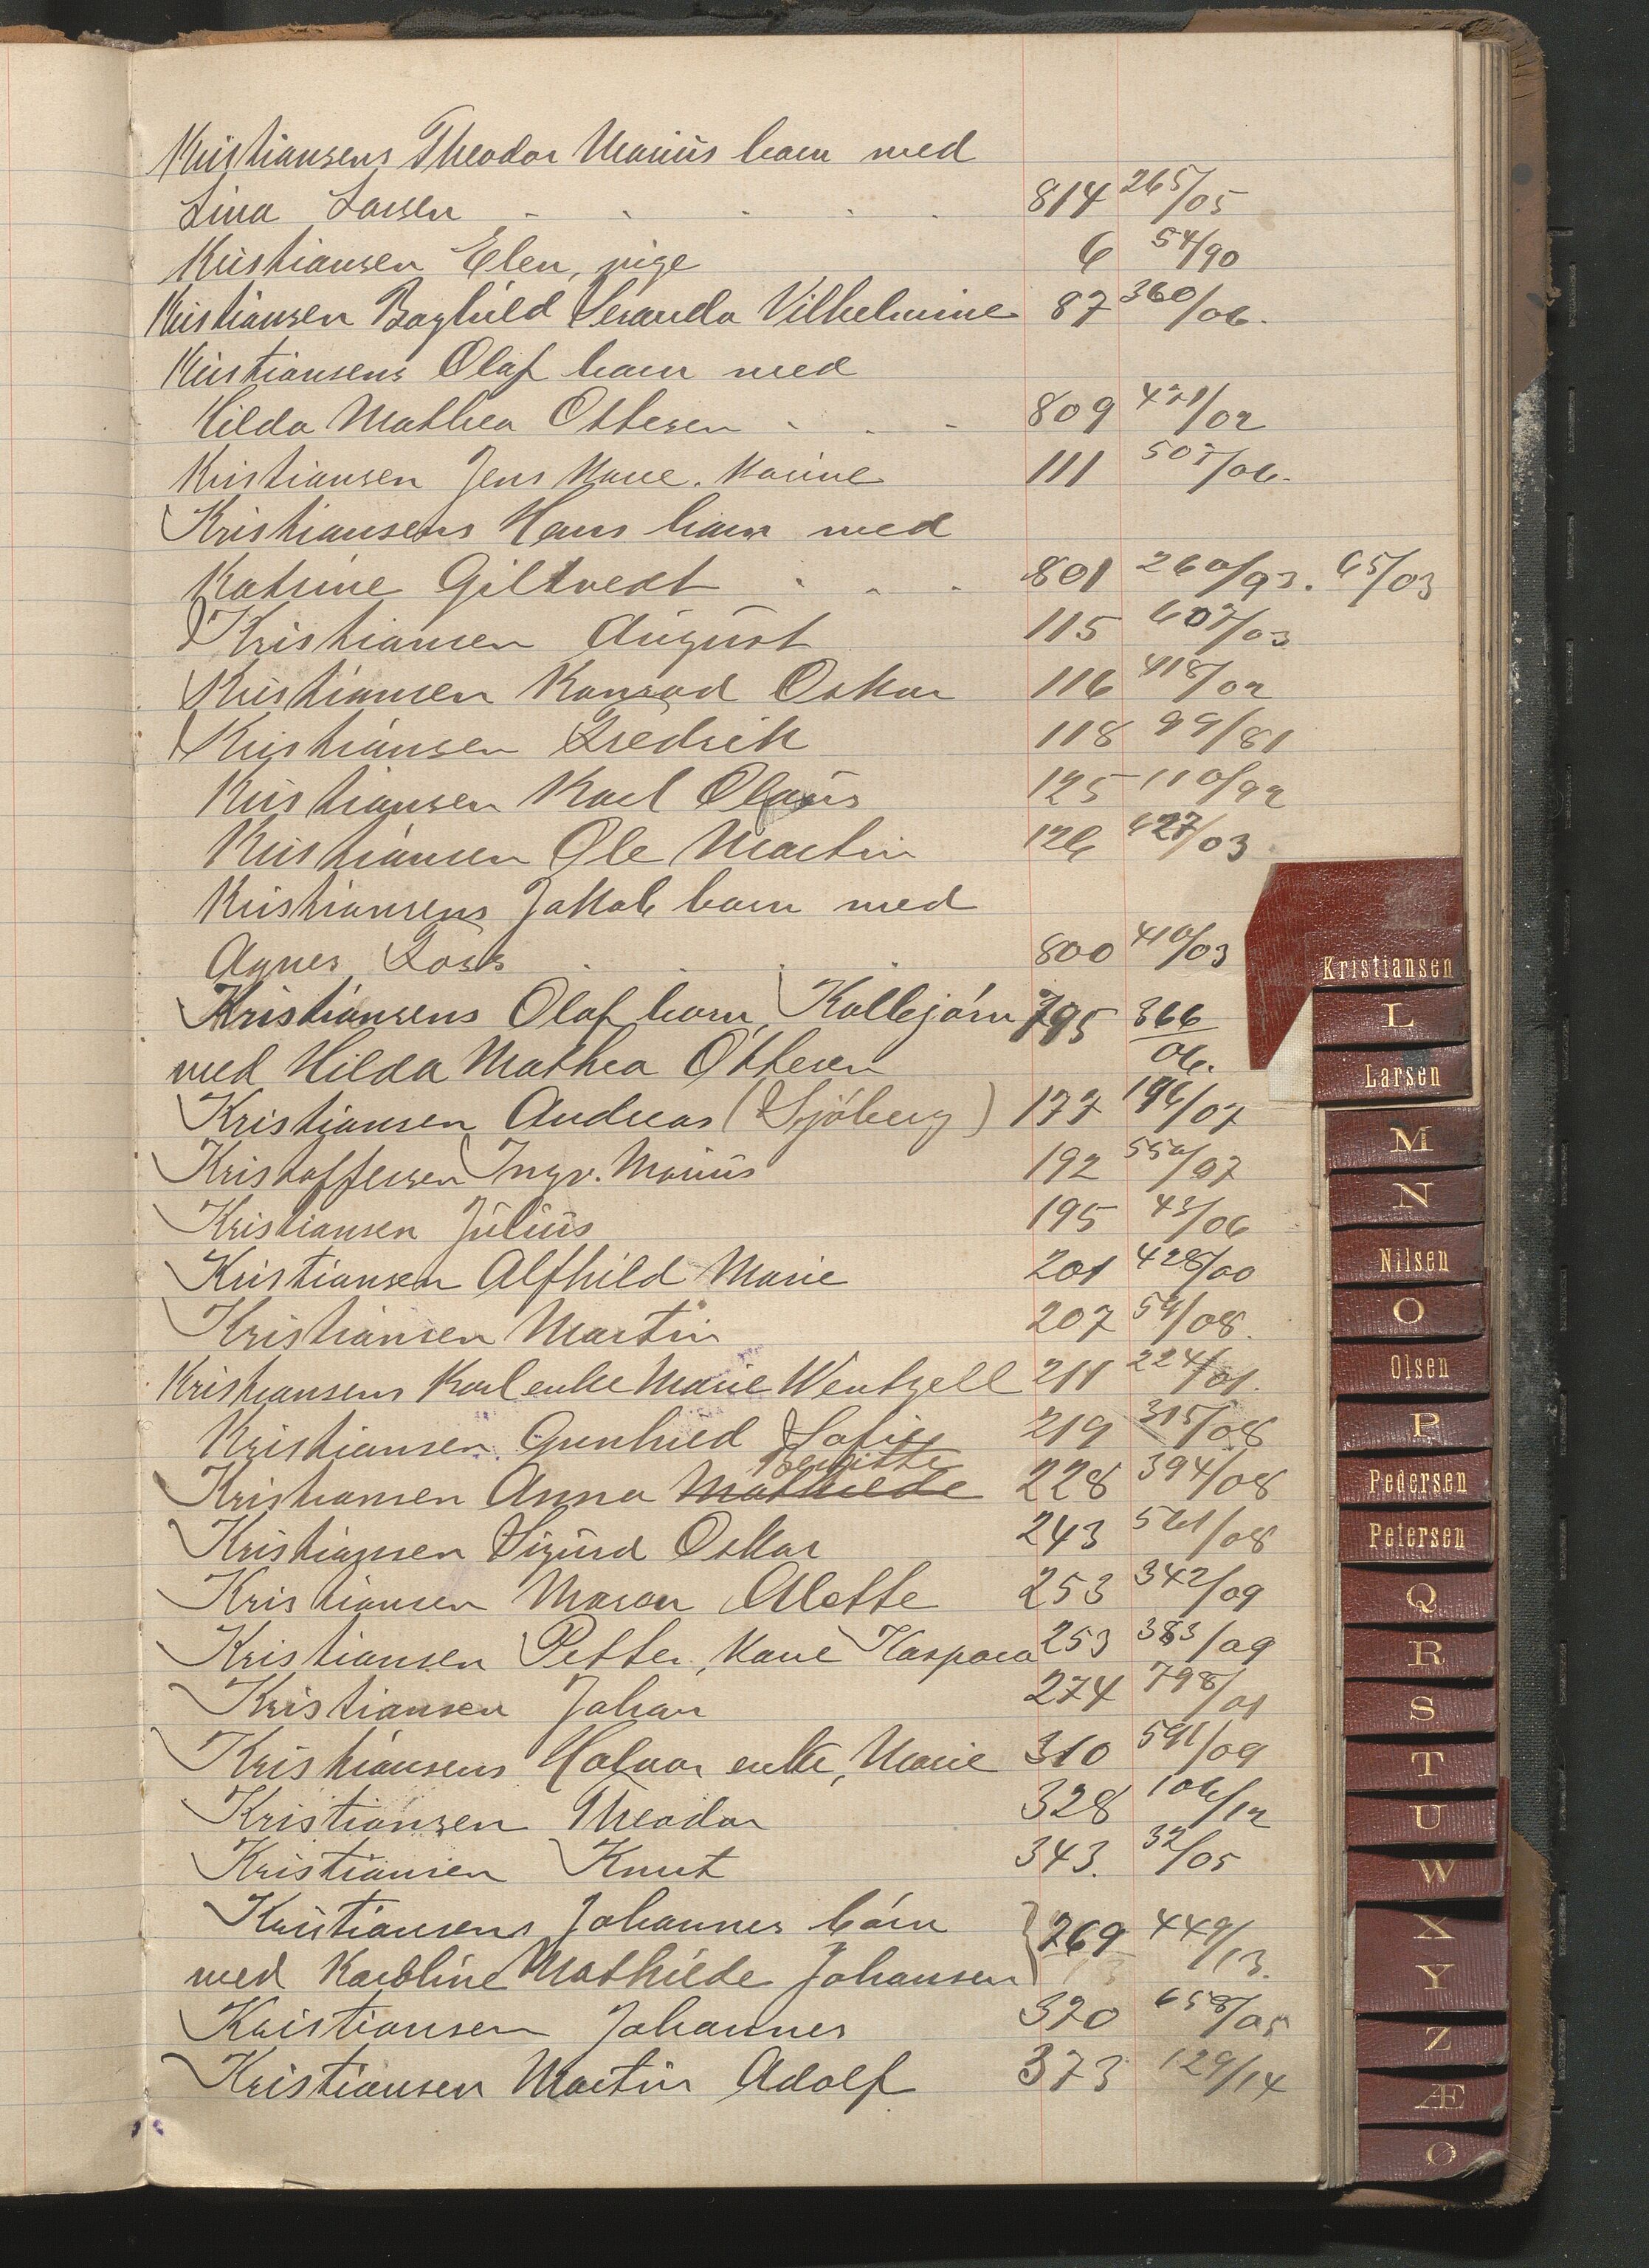 Kristiansens Theodor Marius barn med
Lina Larsen 814 265/05
Kristiansen Elen, pige 6 54/90
Kristiansen Boghild Seranda Vilhelmine 87 360/06.
Kristiansens Olaf barn med
Hilda Mathea Ottesen 809 421/02
Kristiansen Jens Kone. Karine 111 505/06.
Kristiansens Hans barn med
Katrine Giltvedt 801 260/93. 65/03
Kristiansen August 115 607/03
Kristiansen Konrad Oskar 116 418/02
Kristiansen Fredrik 118 99/81
Kristiansen Karl Olaus 125 110/92
Kristiansen Ole Martin 126 427/03
Kristiansens Jakob barn med
Agnes Foss 800 410/03
Kristiansens Olaf barn, Kallejörn 795 366/06.
med Hilda Mathea Ottesen
Kristiansen Andreas (Sjöberg) 177 196/07
Kristoffersen Ingv. Marius 192 550/07
Kristiansen Julius 195 43/06
Kristiansen Alfhild Marie 201 428/00
Kristiansen Martin 207 54/08.
Kristiansens Karl enke Marie Wentzell 211 224/01.
Kristiansen Gunhild Sofie 219 315/08
Kristiansen Anna Mathilde Benditte 228 394/08
Kristiansen Sigurd Oskar 243 561/08
Kristiansen Maren Alette 253 342/09
Kristiansen Petter, Kone Kaspara 253 383/09
Kristiansen Johan 274 798/01
Kristiansens Halvor enke, Marie 310 591/09
Kristiansen Theodor 328 106/12
Kristiansen Knut 343. 32/05
Kristiansens Johannes börn
med Karoline Mathilde Johansen 269 449/13.
Kristiansen Johannes 320 658/05
Kristiansen Martin Adolf 373 129/14
Kristiansen
L
Larsen
M
N
Nilsen
O
Olsen
P
Pedersen
Petersen
Q
R
S
T
U
W
X
Y
Z
Æ
Ø